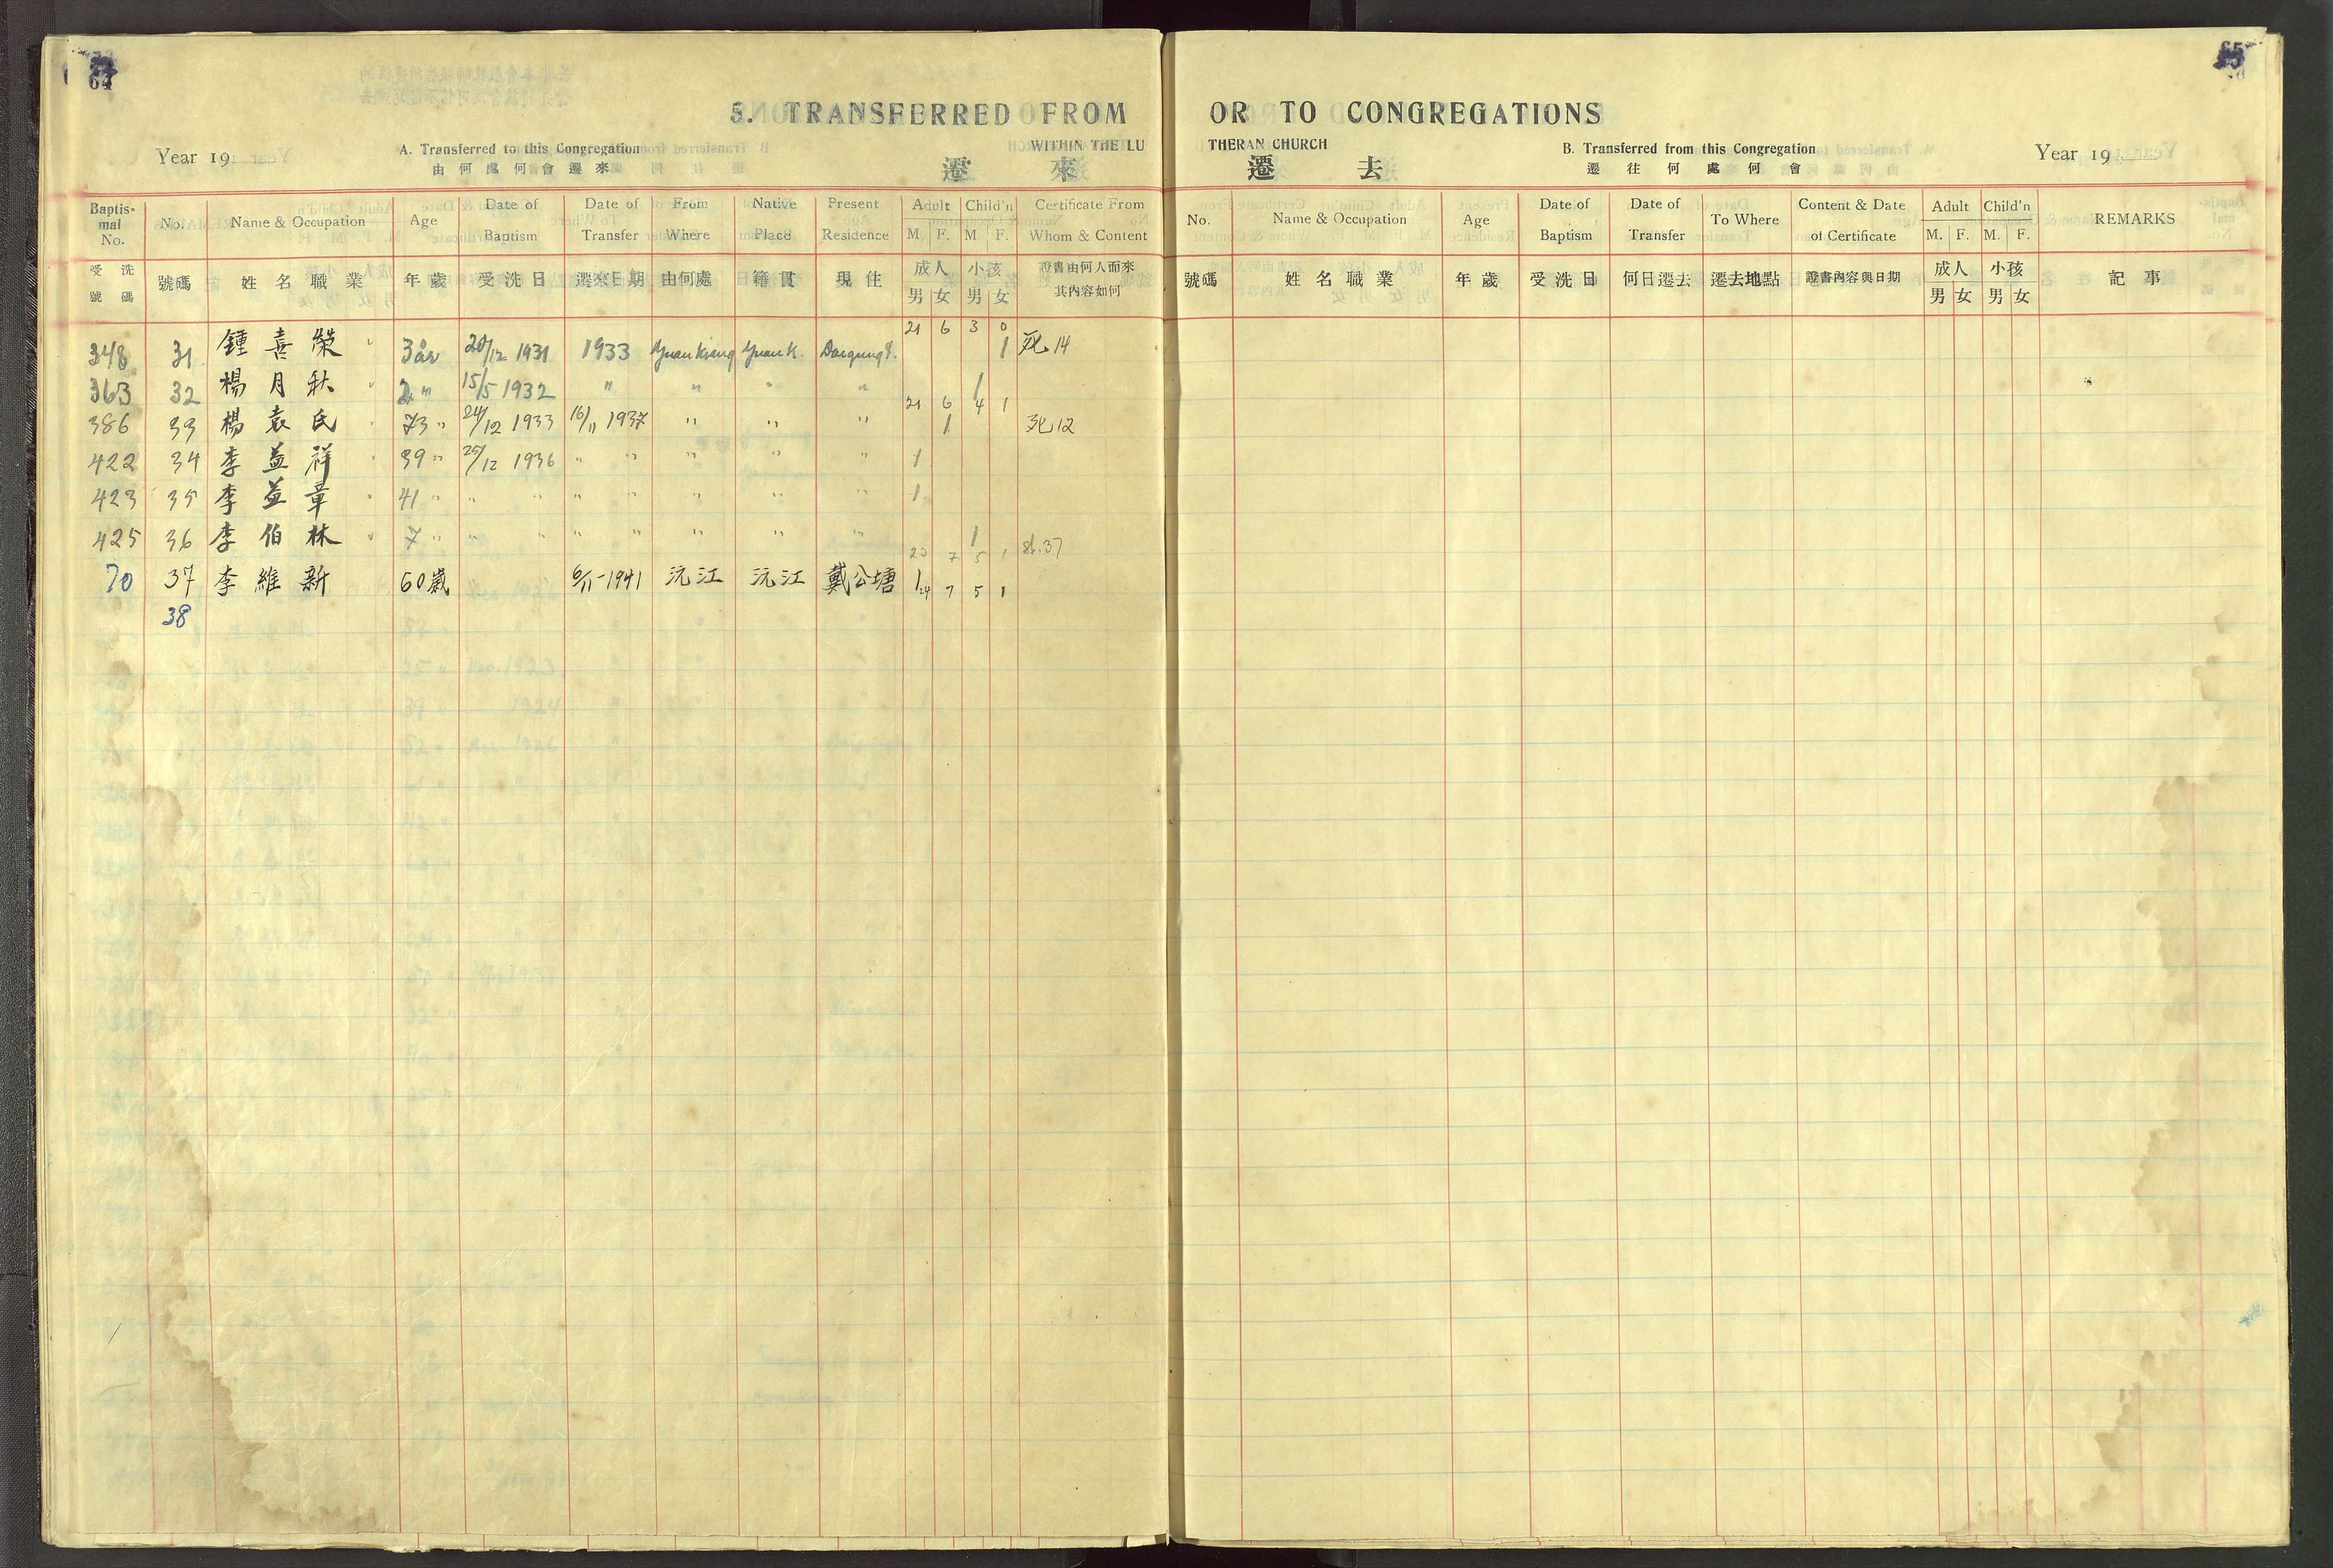 64
65
5. TRANSFERRED FROM OR TO CONGREGATIONS
WITHIN THE LUTHERAN CHURCH
Year 19
A. Transferred to this Congregation
由何處何會遷來
遷來
遷去
B. Transferred from this Congregation
遷往何處何會
Year 19
Baptismal No. No. Name & Occupation Age Date of Baptism Date of Transfer From Where Native Place Present Residence Adult M. F. Child'n M. F. Certificate From Whom & Content
受洗號碼 號碼 姓名職業 年歲 受洗日 遷來日期 由何處 籍貫 現住 成人 男 女 小孩 男 女 證書由何人而來其內容如何
No. Name & Occupation Age Date of Baptism Date of Transfer To Where Content & Date of Certificate Adult M. F. Child'n M. F. REMARKS
號碼 姓名職業 年歲 受洗日 何日遷去 遷去地點 證書內容與日期 成人 男 女 小孩 男 女 記事
21 6 3 0
348 31 鍾喜榮 " 3 år 20/12 1931 1933 Yuankiang Yuan K. 1 死 14
363 32 楊月秋 " 2 " 15/5 1932 " " " " 1
21 6 4 1
386 33 楊袁氏 " 73 " 24/12 1933 16/11 1937 " " " 1 死 12
422 34 李益祥 " 39 " 25/12 1936 " " " " " 1
423 35 李益章 " 41 " " " " " " " " 1
425 36 李伯林 " 7 " " " " " " " " 1
7 5 1 37
70 37 李維新 60歲 6/11-1941 沅江 沅江 戴公塘 1
24 7 5 1
38